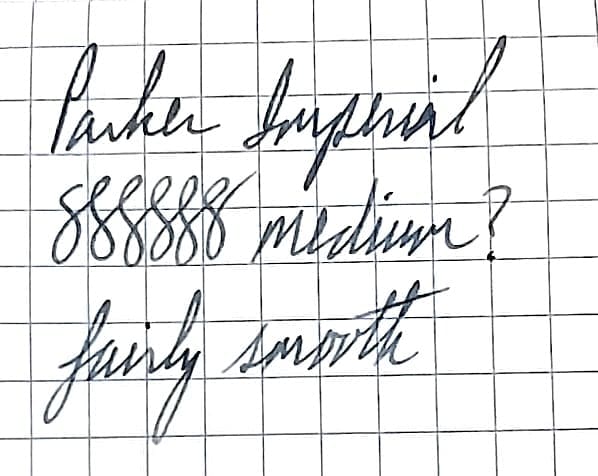 Parker Imperial
888888 medium?
fairly smooth